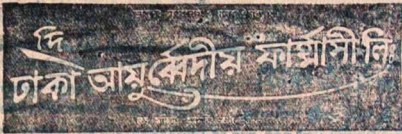 দি
ঢাকা আয়ুর্ব্বেদীয় ফার্ম্মাসী লিঃ